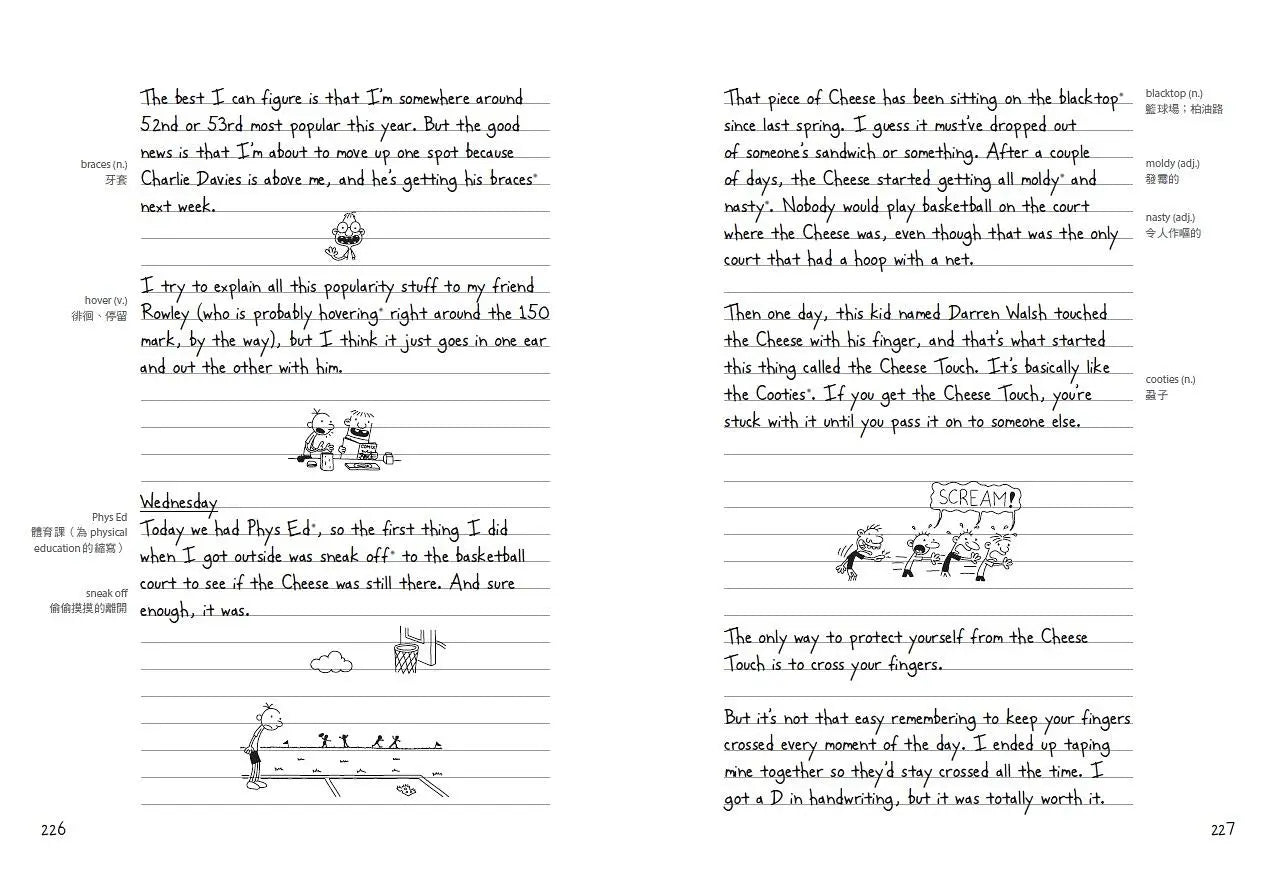 The best I can figure is that I'm somewhere around
52nd or 53rd most popular this year. But the good
news is that I'm about to move up one spot because
Charlie Davies is above me, and he's getting his braces*
next week.
braces (n.)
牙套
I try to explain all this popularity stuff to my friend
Rowley (who is probably hovering* right around the 150
mark, by the way), but I think it just goes in one ear
and out the other with him.
hover (v.)
徘徊、停留
COMIX
Wednesday
Today we had Phys Ed*, so the first thing I did
when I got outside was sneak off* to the basketball
court to see if the Cheese was still there. And sure
enough, it was.
Phys Ed
體育課（為 physical
education 的縮寫）
sneak off
偷偷摸摸的離開
226
That piece of Cheese has been sitting on the blacktop*
since last spring. I guess it must've dropped out
of someone's sandwich or something. After a couple
of days, the Cheese started getting all moldy* and
nasty*. Nobody would play basketball on the court
where the Cheese was, even though that was the only
court that had a hoop with a net.
blacktop (n.)
籃球場；柏油路
moldy (adj.)
發霉的
nasty (adj.)
令人作嘔的
Then one day, this kid named Darren Walsh touched
the Cheese with his finger, and that's what started
this thing called the Cheese Touch. It's basically like
the Cooties*. If you get the Cheese Touch, you're
stuck with it until you pass it on to someone else.
cooties (n.)
蝨子
SCREAM!
The only way to protect yourself from the Cheese
Touch is to cross your fingers.
But it's not that easy remembering to keep your fingers
crossed every moment of the day. I ended up taping
mine together so they'd stay crossed all the time. I
got a D in handwriting, but it was totally worth it.
227